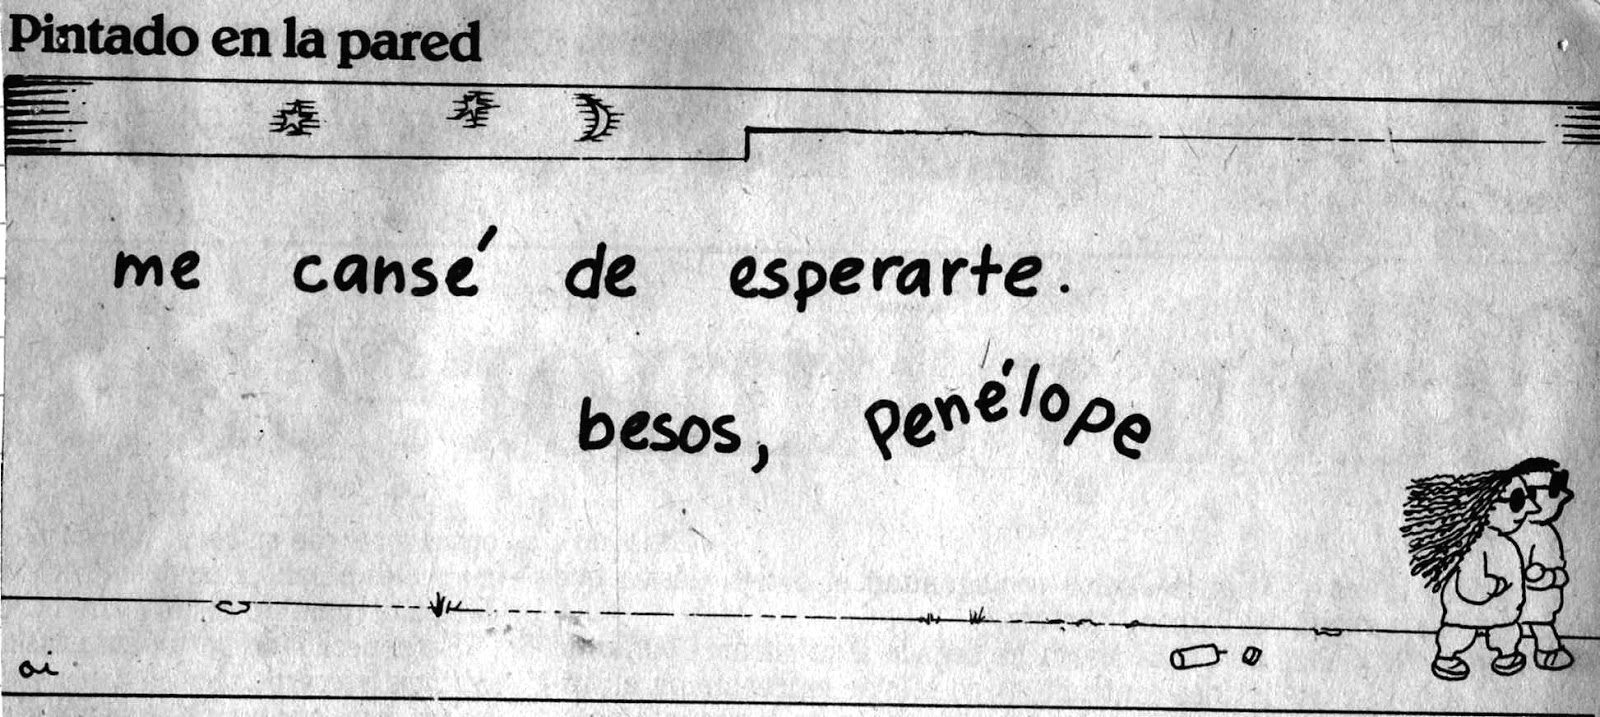 Pintado en la pared
me cansé de esperarte.
besos, Penélope
oi